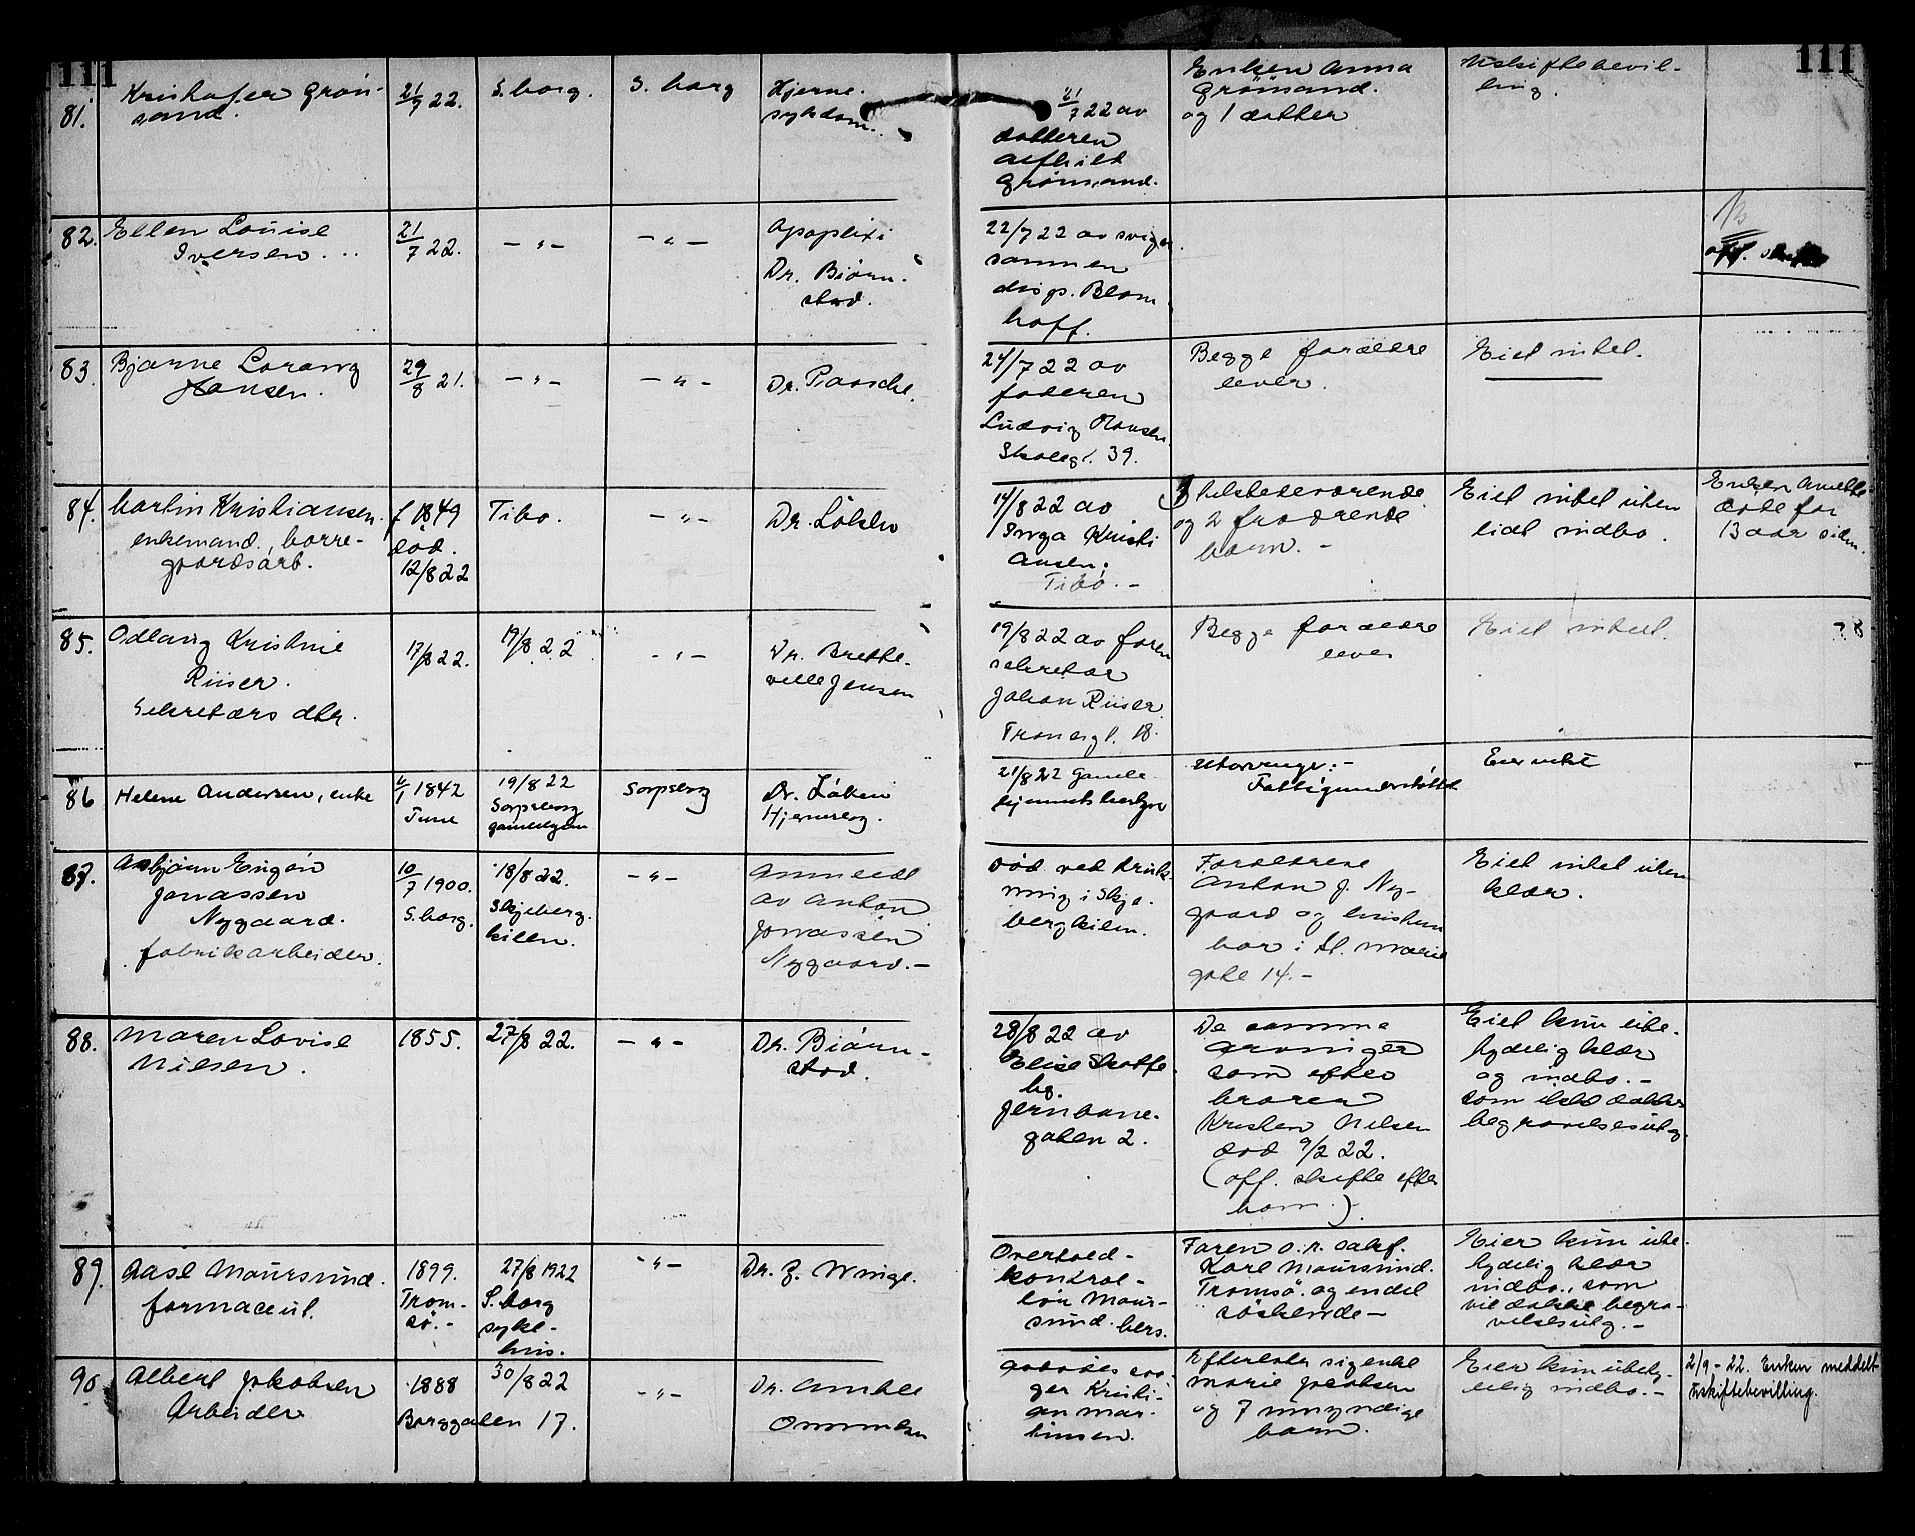 111
111
81.
Kristofer Grön-
sand.
21/9 22.
S. borg.
S. borg
Hjerne-
sykdom.
21/7 22 av
datteren
Grönsand.
Enken Anna
Grönsand.
og 1 datter
Uskiftebevil-
ling.
82.
Ellen Louise
Iversen
21/7 22.
— " —
— " —
Apoplexi
Dr. Biörn-
stad.
22/7 22 av sviger
sönnen
disp. Blom
hoff.
off. skifte
83.
Bjarne Lorang
Hansen.
29/8 21.
— " —
— " —
Dr. Paasche.
24/7 22 av
faderen
Ludvig Hansen
Skoleg. 39.
Begge forældre
lever.
Eiet intet.
84.
Martin Kristiansen.
enkemand, borre-
gaardsarb.
f 1849
död.
12/8 22
Tibo.
— " —
Dr. Lölsbo
14/8 22 av
Inga Kristi
ansen.
Tibo. -
3 tilstedeværende
og 2 fraværende
barn. -
Eiet intet uten
lidt indbo.
Enken Anette
döde for
13 aar siden.
85.
Odlaug Kristine
Riiser.
Sekretærs dtr.
17/8 22.
19/8 22
— " —
Dr. Brette-
ville Jensen
19/8 22 av faren
sekretær
Johan Riiser
Tronesgt. 18.
Begge forældre
lever
Eiet intet.
? 8
86
Helene Andersen, enke
4/1 1842
Tune
19/8 22
Sarpsborg
gamlehjem
Sarpsborg
Dr. Löken
Hjernesyg.
21/8 22 Gamle
hjemmets bestyrer
Utarvinger: -
Fattigunderstöttet
Eier intet
87.
Asbjörn Eugen
Jonassen
Nygaard.
fabrikarbeider.
10/7 1900.
S. borg.
18/8 22.
Skjeberg-
kilen.
— " —
Anmeldt
av Anton
Jonassen
Nygaard. —
Död ved druk-
ning i Skje-
bergkilen.
Forældrene
Anton J. Ny-
gaard og hustru
bor i St. Marie
gate 14. -
Eiet intet uten
klær.
88.
Maren Lovise
Nilsen.
1855.
27/8 22.
— " —
Dr. Biörn-
stad.
28/8 22 av
Elise Skofte
by.
Jernbane-
gaten 2.
De samme
arvinger
som efter
broren
Kristen Nilsen
död 9/2 22.
(off. skifte efter
ham.)
Eiet kun ube-
tydelig klær
og indbo. -
som ikke dækker
begravelsesutg.
89.
Aase Maursund.
farmaceut.
1899.
Trom-
sö. -
27/8 1922
S. borg
syke-
hus.
— " —
Dr. Z. Winge.
Overtold-
kontrol-
lör Maur-
sund. hers.
Faren o.r. sakf.
Karl Maursund.
Tromsö. og endel
söskende —
Eier kun ube-
tydelig klær
indbo., som
vil dække begra-
velsesutg. -
90
Albert Jakobsen
Arbeider
1888
Borggaten 17.
30/8 22
— " —
Dr. Anker
Ommelsen
ger Kristi-
an Mar-
tinsen.
Efterlater sig enke
Marie Jacobsen
og 7 umyndige
barn.
Eier kun ubety-
delig indbo. -
2/9 - 22. Enken meddelt
uskiftebevilling.